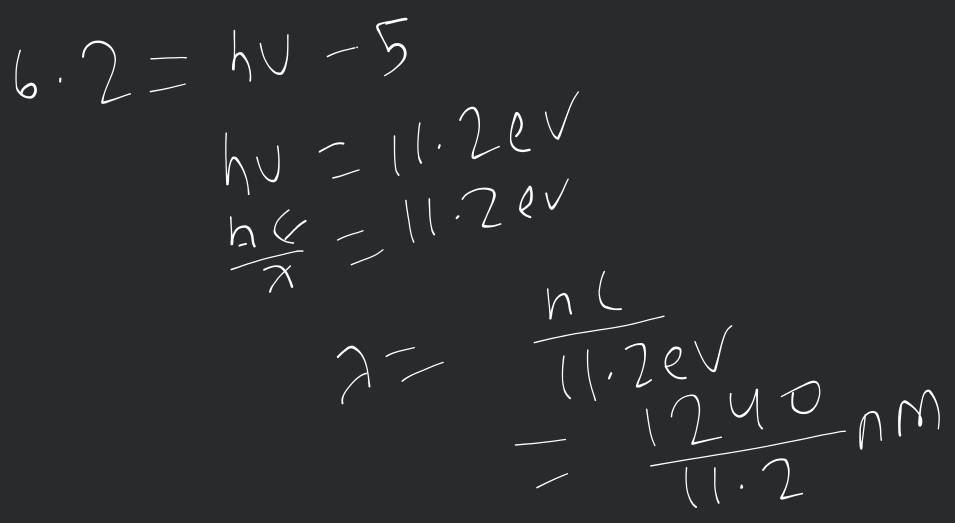 6.2 = hν - 5
hν = 11.2ev
hc/λ = 11.2ev
λ = hc/11.2ev
= 1240/11.2 nM